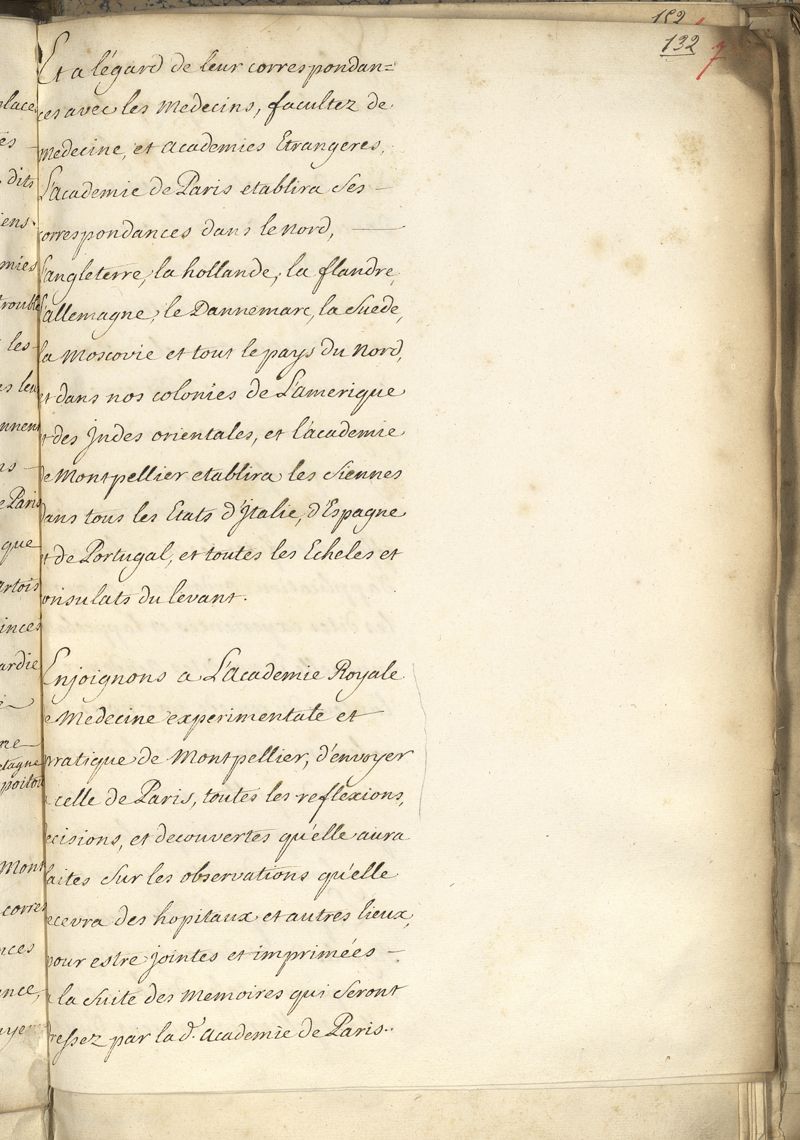 182
132
7
Et a légard de leur correspondan=
ces avec les Medecins, facultez de
Medecine, et academies Etrangeres,
L'academie de Paris etablira ses –
correspondances dans le Nord, —
L'angleterre, la hollande, la flandre,
L'allemagne, le Dannemarc, la Suede,
la Moscovie et tout le pays du Nord,
et dans nos colonies de L'amerique
et des Indes orientales, et l'académie
de Montpellier etablira les siennes
dans tous les Etats d'Italie, d'Espagne
et de Portugal, et toutes les Echeles et
consulats du levant.
Enjoignons a L'Academie Royale
de Medecine experimentale et
pratique de Montpellier, d'envoyer
a celle de Paris, toutes les reflexions,
decisions, et decouvertes qu'elle aura
faites sur les observations qu'elle
recevra des hopitaux et autres lieux,
pour estre jointes et imprimées –
a la suite des Memoires qui seront
dressez par la d.e academie de Paris.